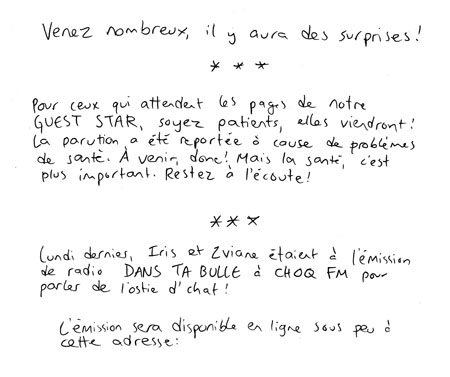 Venez nombreux, il y aura des surprises!
* * *
Pour ceux qui attendent les pages de notre
GUEST STAR, soyez patients, elles viendront!
La parution a été reportée à cause de problèmes
de santé. À venir, donc! Mais la santé, c'est
plus important. Restez à l'écoute!
* * *
Lundi dernier, Iris et Zviane étaient à l'émission
de radio DANS TA BULLE à CHOQ FM pour
parler de l'ostie d'chat!
L'émission sera disponible en ligne sous peu à
cette adresse: